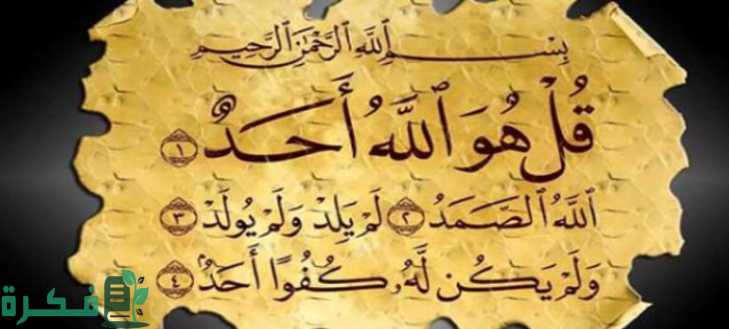 بِسْمِ ٱللَّهِ ٱلرَّحْمَٰنِ ٱلرَّحِيمِ
قُلْ هُوَ ٱللَّهُ أَحَدٌ ١
ٱللَّهُ ٱلصَّمَدُ ٢ لَمْ يَلِدْ وَلَمْ يُولَدْ ٣
وَلَمْ يَكُن لَّهُۥ كُفُوًا أَحَدٌۢ ٤
فكرة